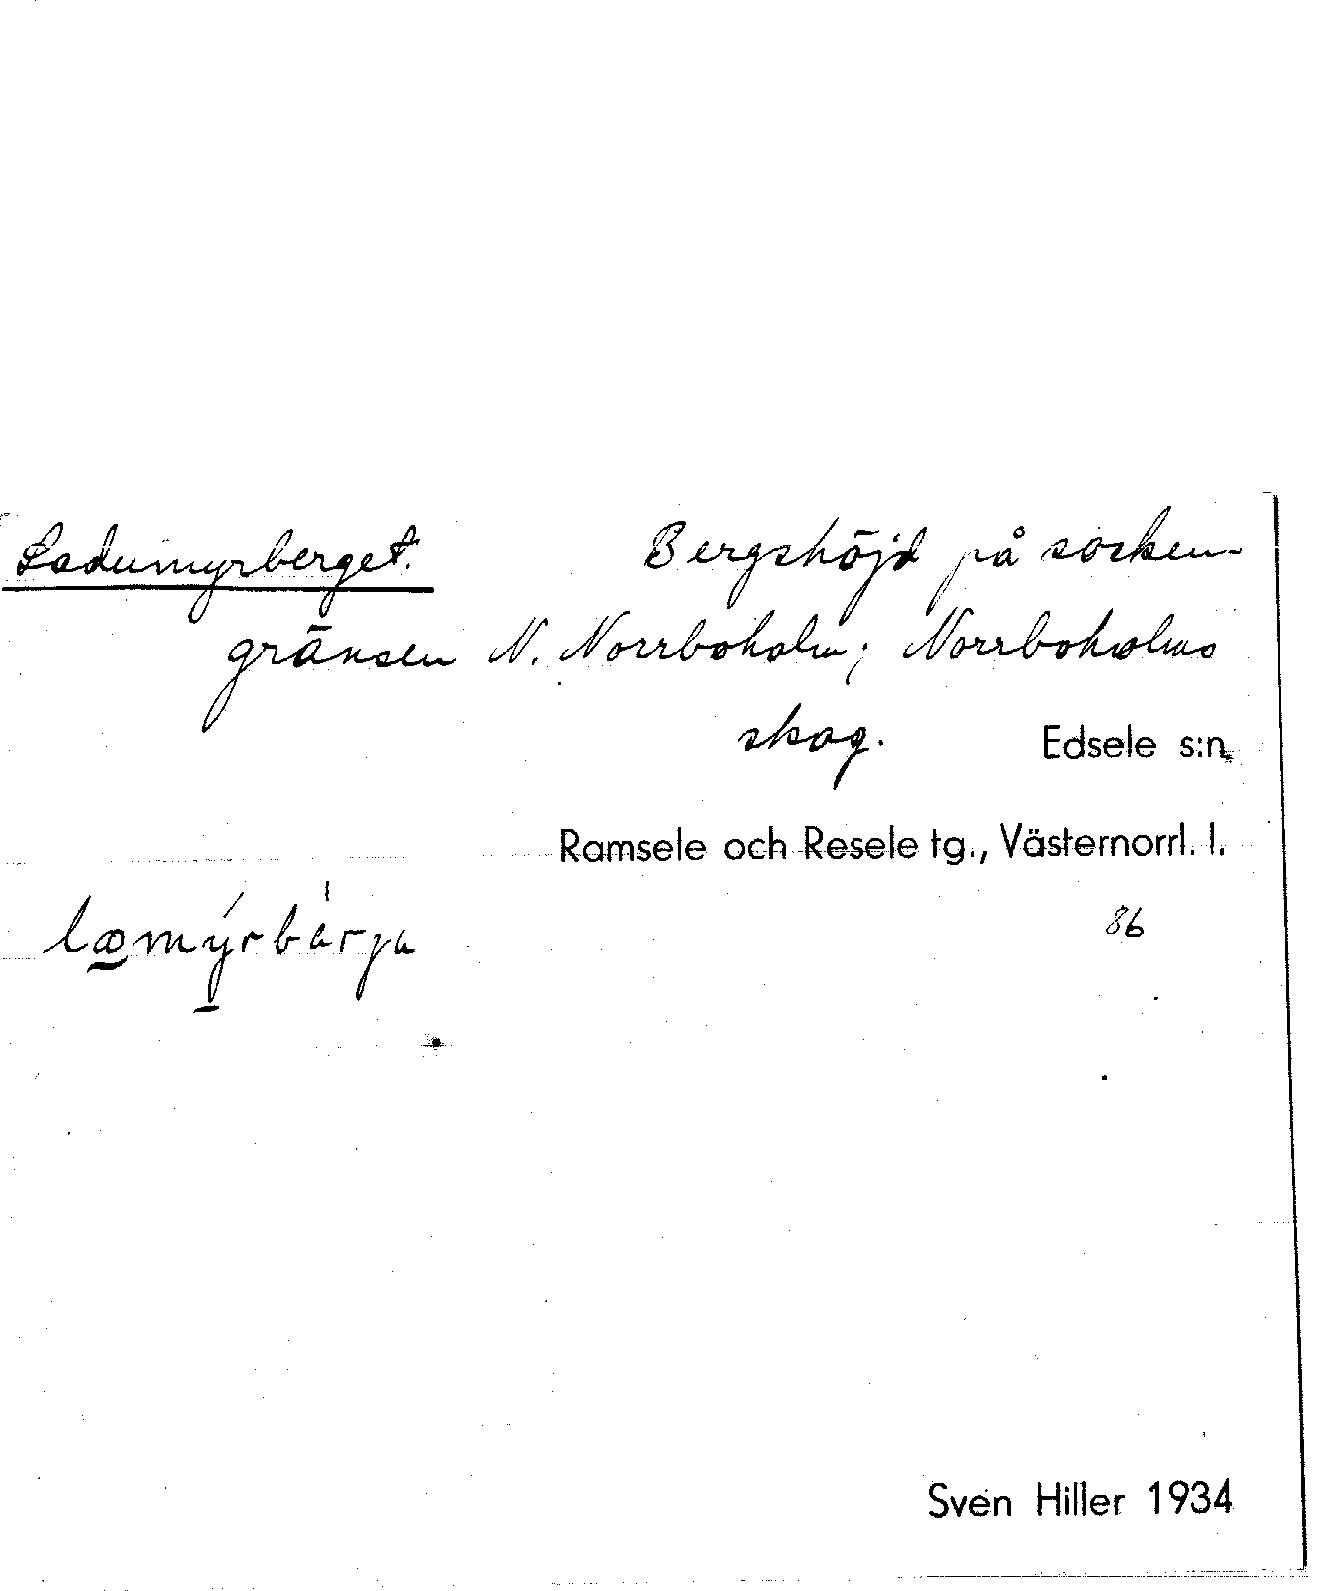 Ladumyrberget. Bergshöjd på socken-
gränsen N. Norrboholm; Norrboholms
skog. Edsele s:n
Ramsele och Resele tg., Västernorrl. l.
86
Sven Hiller 1934